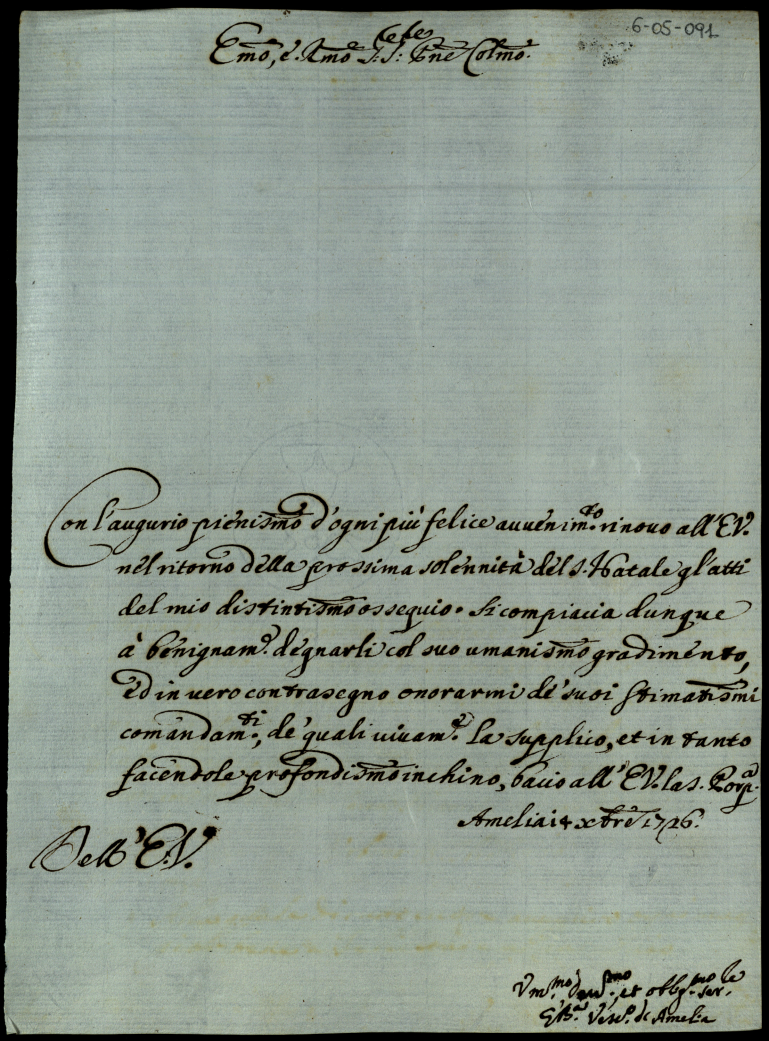 6-05-091
Emo, e Rmo Sig.re Sig.re Pne Colmo.
Con l'augurio pienismo d'ogni più felice auuenim.to rinouo all'E.V.
nel ritorno della prossima solennità del S. Natale gl'atti
del mio distintismo ossequio. Si compiacia dunque
à benignam.e degnarli col suo umanismo gradimento,
ed in uero contrasegno onorarmi de' suoi stimatismi
comandam.ti, de' quali uiuam.e La supplico, et in tanto
facendole profondismo inchino, bacio all'E.V. la s. Porp.a
Amelia 14 xbre 1726.
Dell'E.V.
Vm.mo deu.smo, et obblg.mo ser.le
G. B.a Vesc.o di Amelia